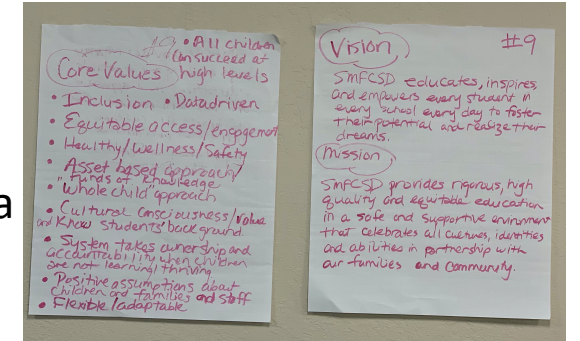 #9 • All children
can succeed at
high levels
Core Values
• Inclusion • Data driven
• Equitable access/engagement
• Healthy/wellness/Safety
• Asset based approach/
"Funds of knowledge
• "Whole child" approach
• Cultural consciousness/value
and know students' background.
• System takes ownership and
accountability when children
are not learning/thriving
• Positive assumptions about
children and families and staff
• Flexible/adaptable
Vision #9
SMFCSD educates, inspires,
and empowers every student in
every school every day to foster
their potential and realize their
dreams.
Mission
SMFCSD provides rigorous, high
quality and equitable education
in a safe and supportive environment
that celebrates all cultures, identities
and abilities in partnership with
our families and community.
a